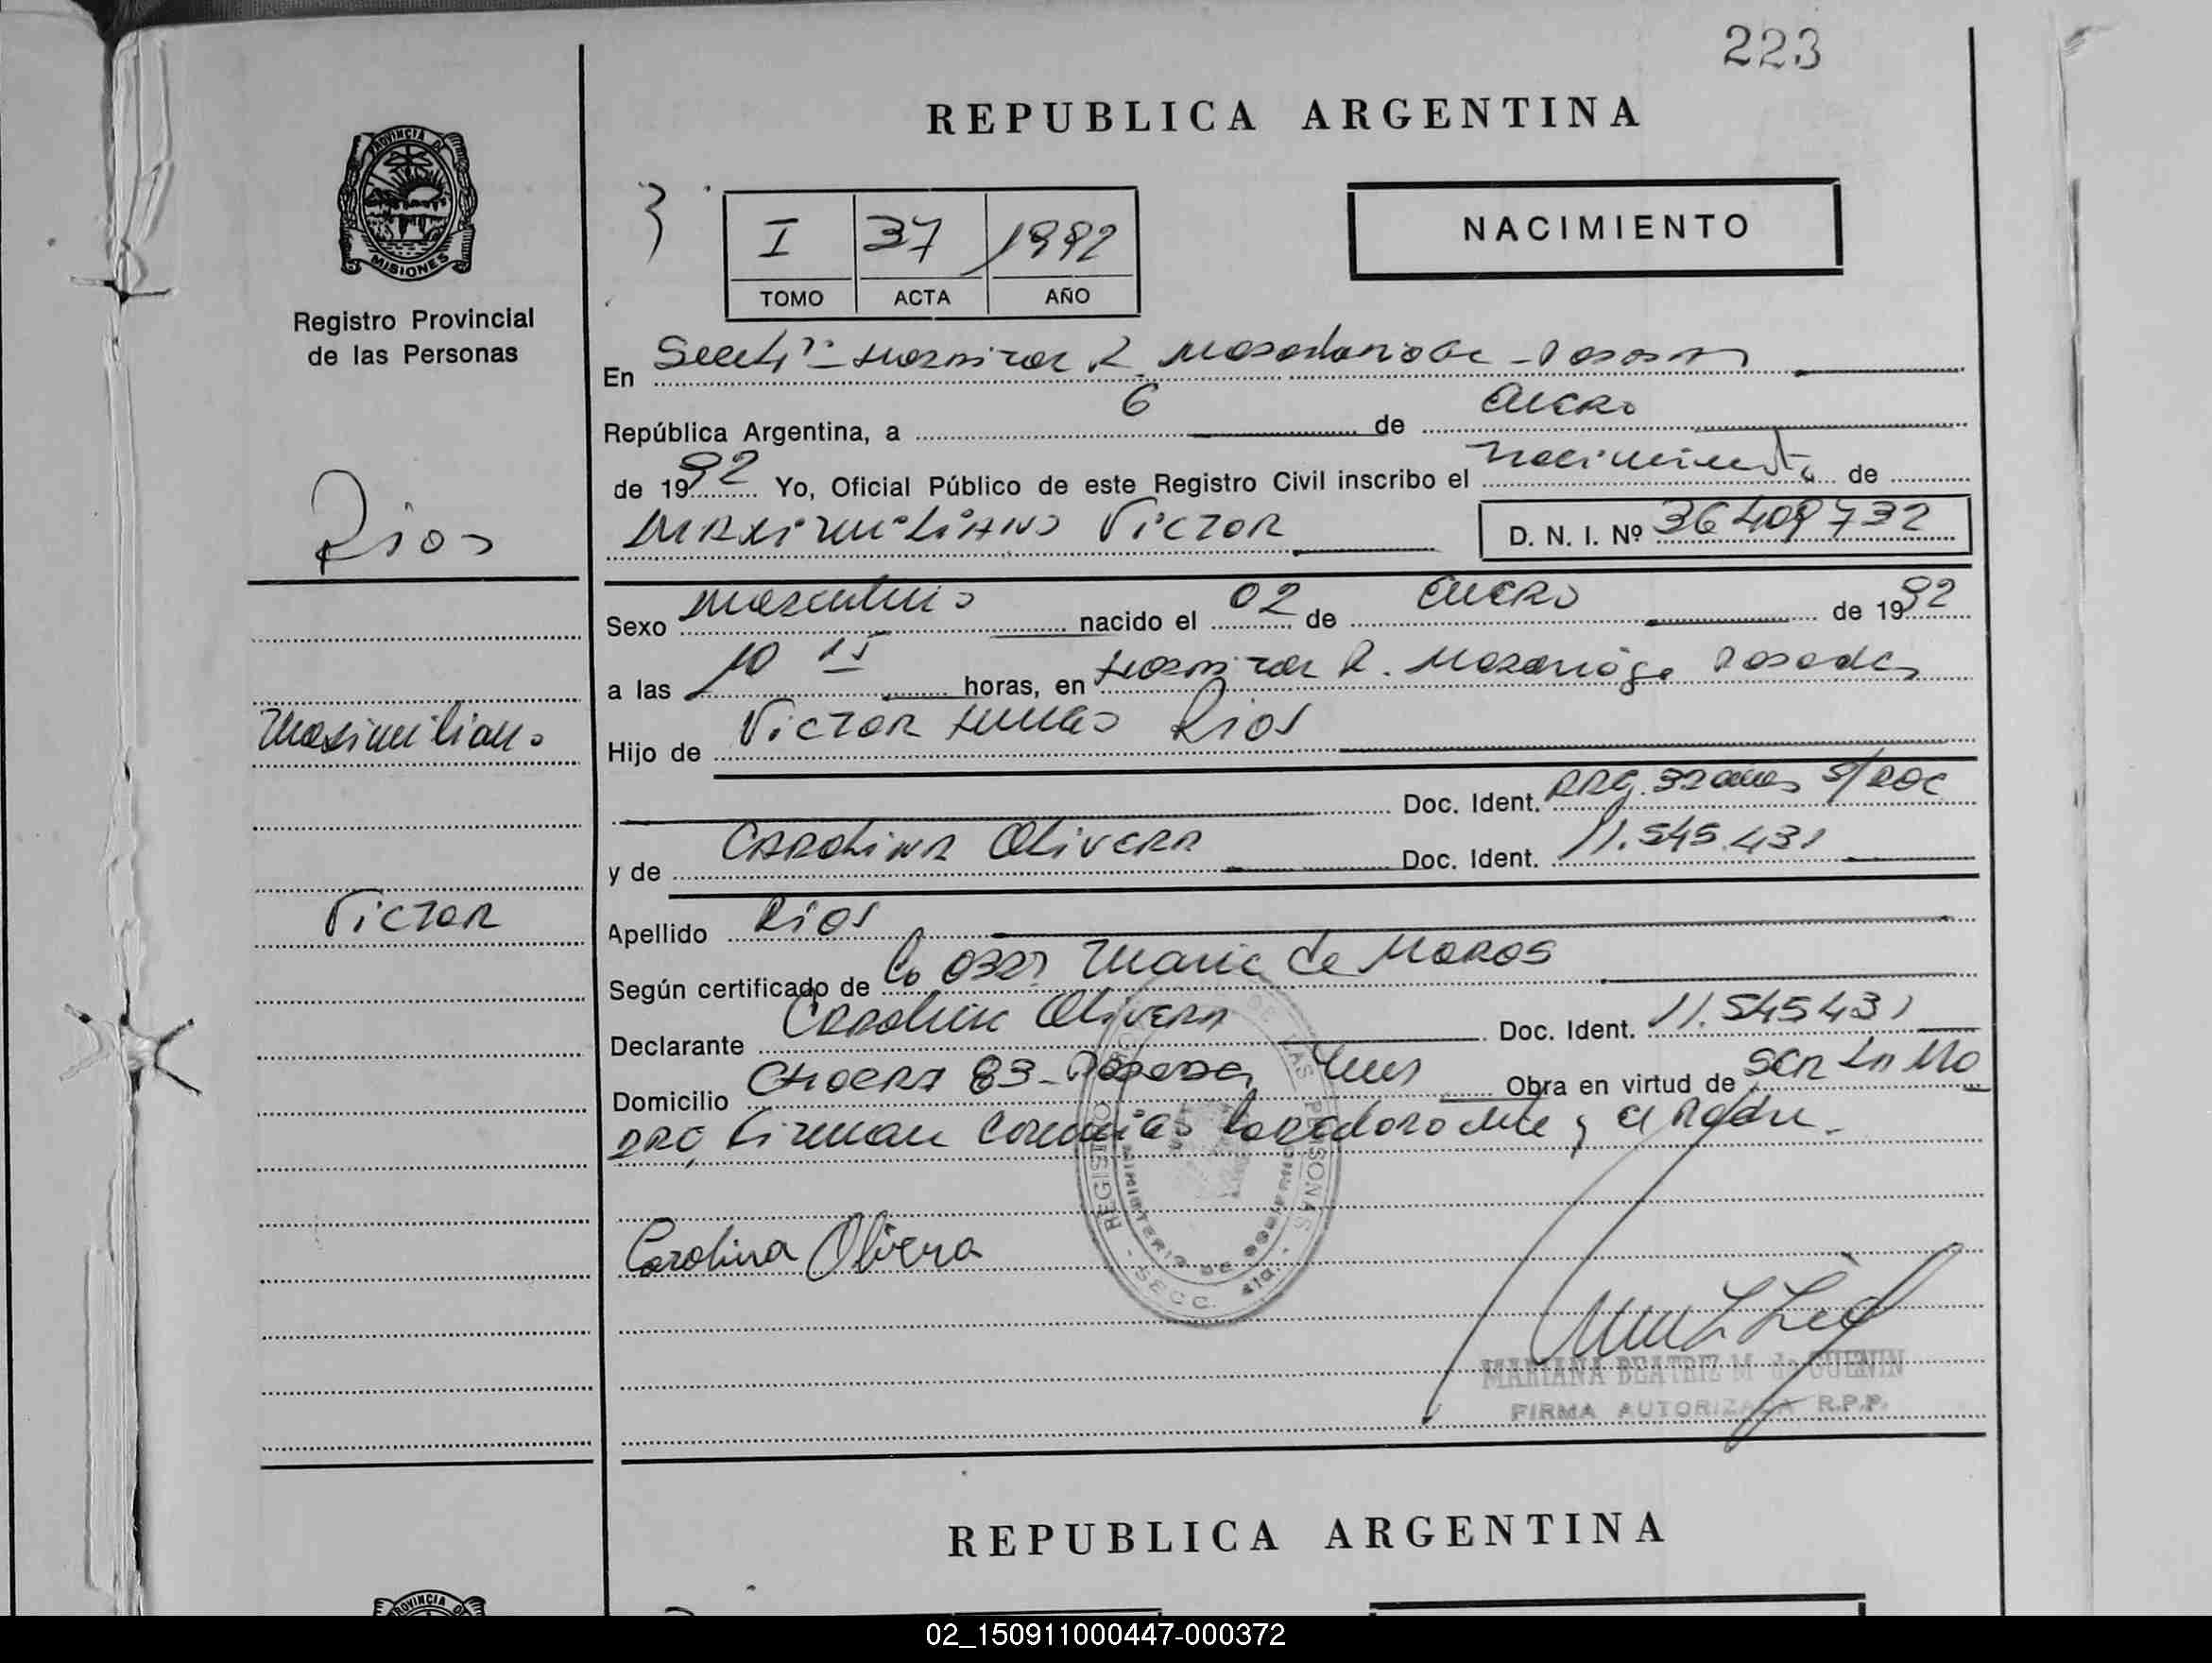 223
REPUBLICA ARGENTINA
PROVINCIA DE
MISIONES
Registro Provincial
de las Personas
I 37 1992
TOMO ACTA AÑO
NACIMIENTO
En
República Argentina, a 6 de enero
de 1992 Yo, Oficial Público de este Registro Civil inscribo el nacimiento de
Maximiliano Victor
D. N. I. Nº 36409732
Rios
Sexo masculino nacido el 02 de enero de 1992
a las 10 15 horas, en R. Posadas
Maximiliano
Hijo de Victor Rios
Doc. Ident. ARG. 32 años s/DOC
y de Carolina Olivera Doc. Ident. 11.545.431
Victor
Apellido Rios
Según certificado de Maria de
Declarante Carolina Olivera Doc. Ident. 11.545431
Domicilio 83- Obra en virtud de
y el padre.
REGISTRO DE LAS PERSONAS
MINISTERIO DE GOBIERNO
SECC. 4ta.
Carolina Olivera
MARIANA BEATRIZ M de GUENIN
FIRMA AUTORIZADA R.P.P.
REPUBLICA ARGENTINA
PROVINCIA DE
02_150911000447-000372